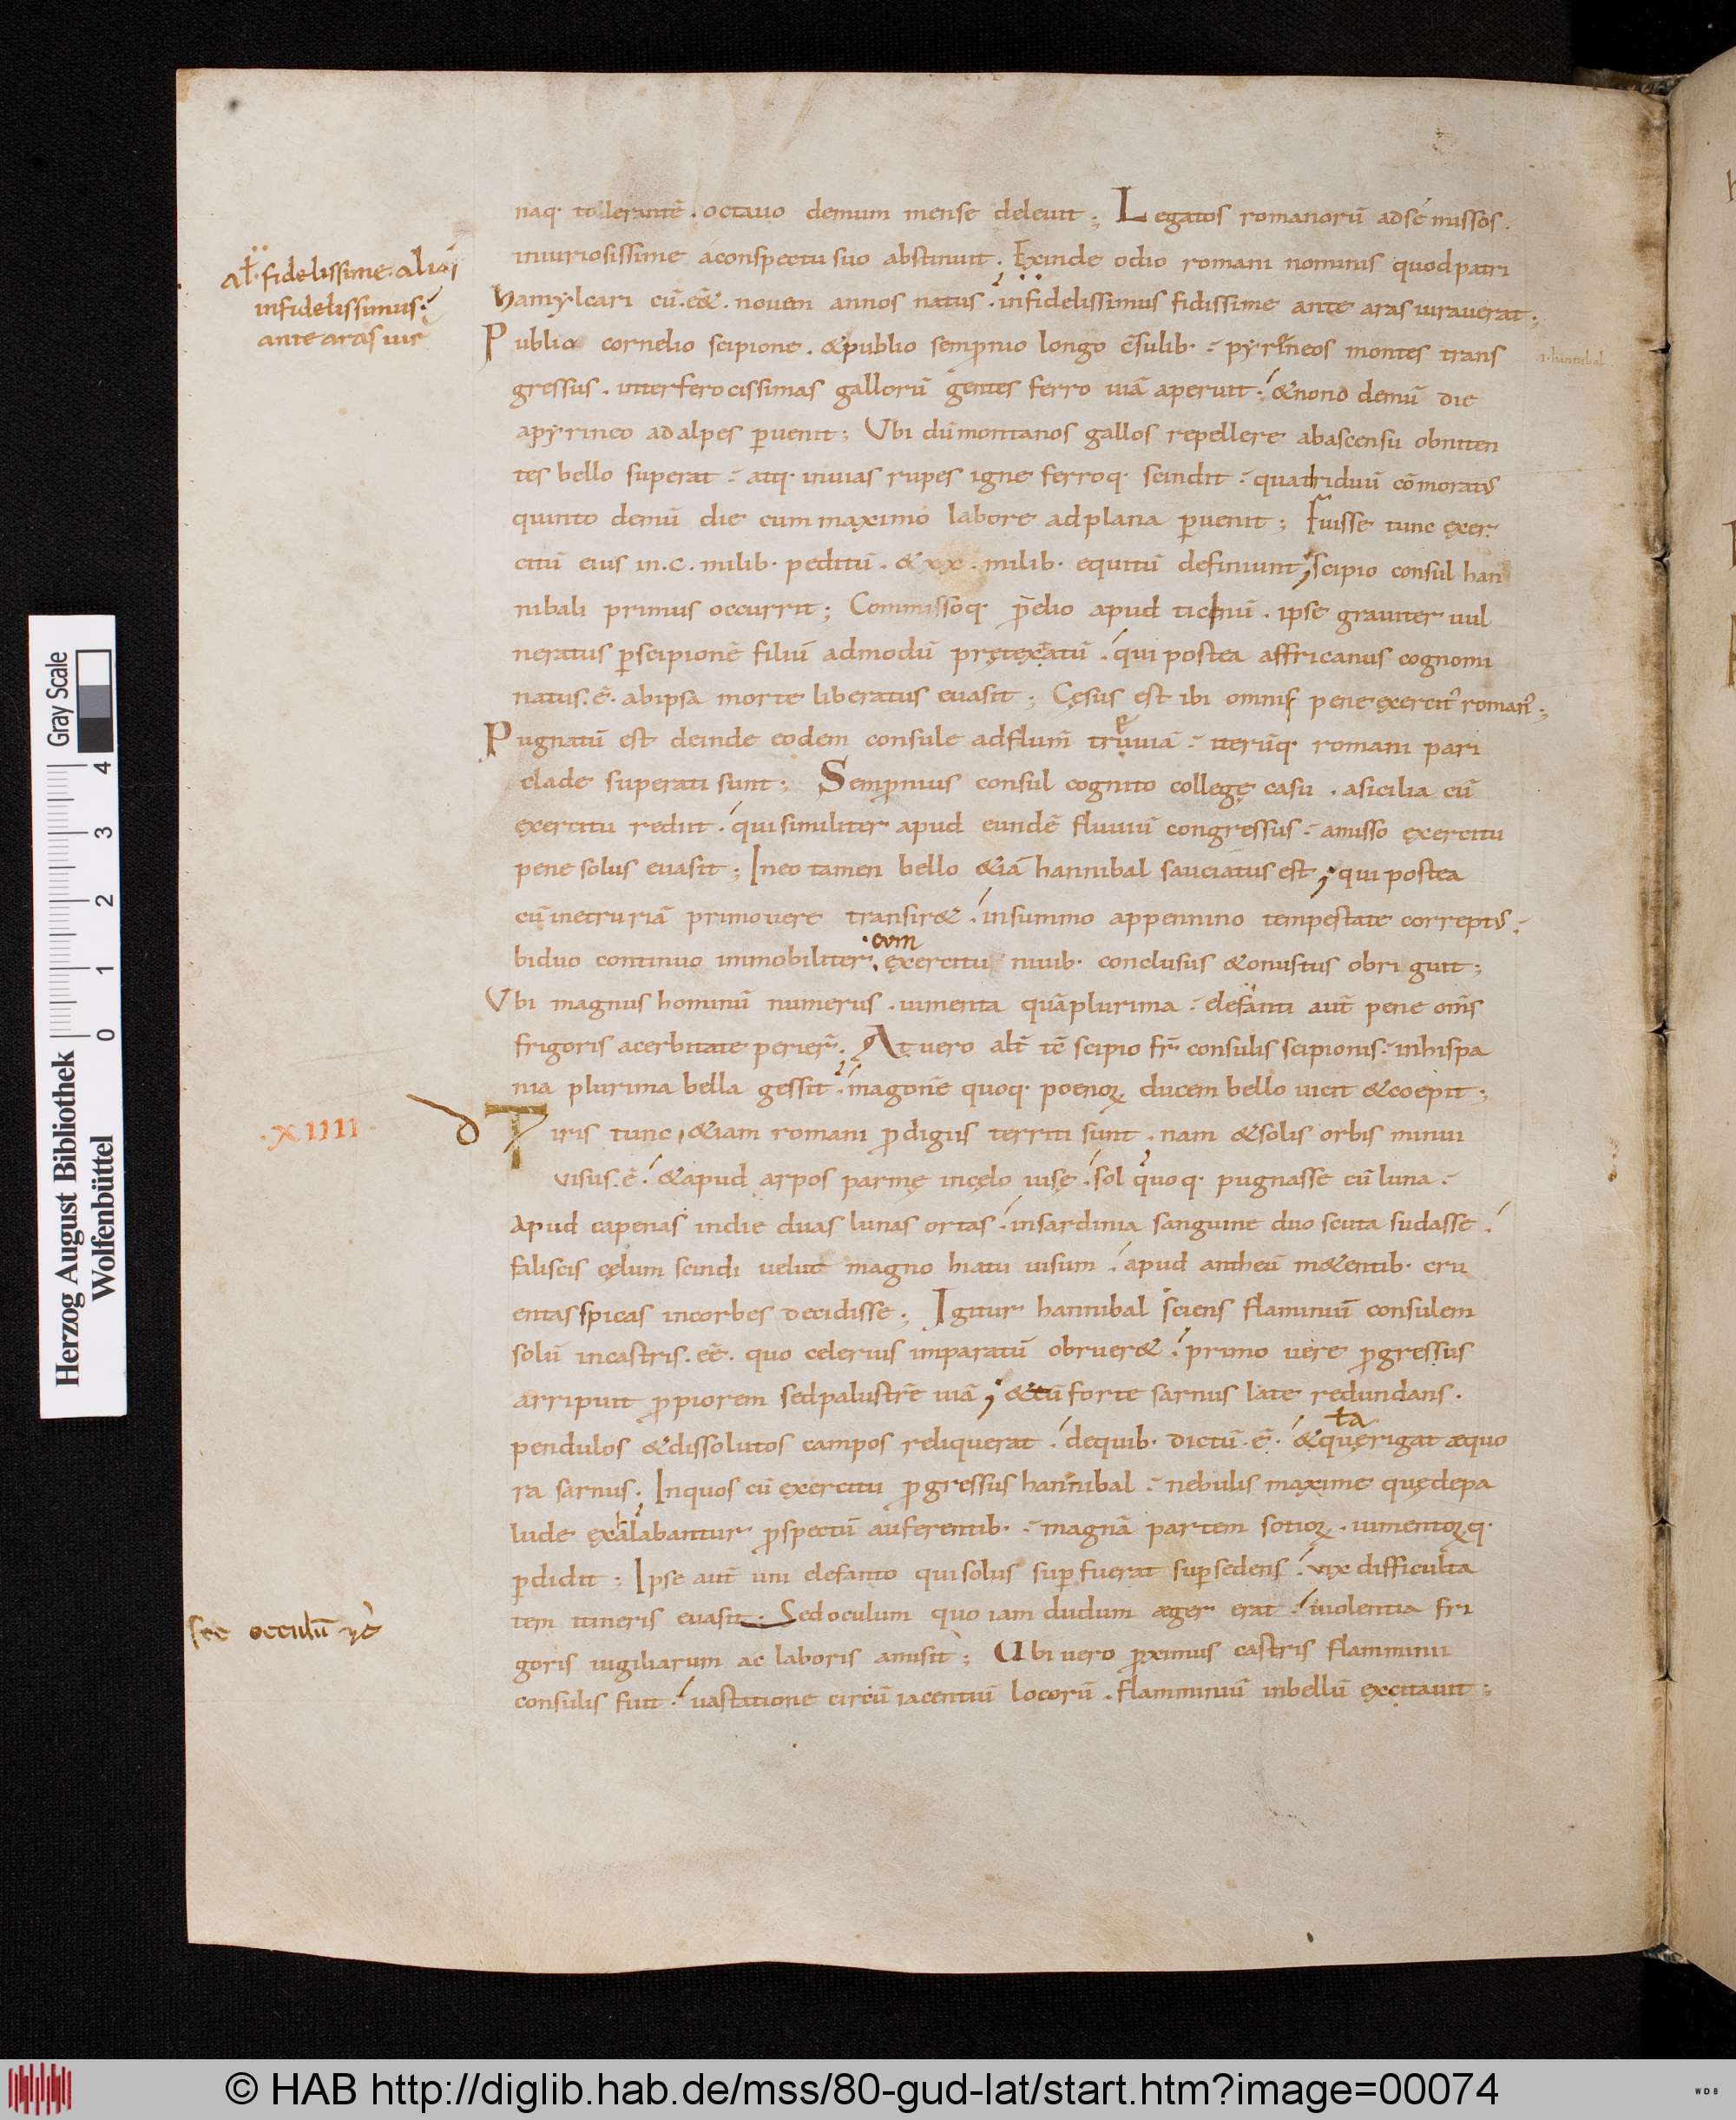 naq· tollerantē . octauo demum mense deleuit ; Legatos romanorū adsé missos .
iniuriosissime áconspectu suo abstinuit . Exinde odio romani nominis quodpatri
hamylcari cū . eēt . nouem annos natus . infidelissimus fidissime ante aras iurauerat ;
al fidelissime . alias
infidelissimus
ante aras iur̄
Publio cornelio scipione . &publio sempronio longo c̄sulib· pyrineos montes trans
.i. hannibal
gressus . inter ferocissimas gallorū gentes ferro uiā aperuit . &nono demū die
apyrineo adalpes puenit ; Vbi dūmontanos gallos repellere abascensu obniten
tes bello superat . atq· inuias rupes igne ferroq· scindit . quatriduū cōmoratus
quinto demū die cum maximo labore adplana puenit ; Fuisse tunc exer
citū eius in . c . milib· peditū . & xx . milib· equitū definiunt ; scipio consul han
nibali primus occurrit ; Commissoq· p̄lio apud ticinū . ipse grauiter uul
neratus pscipionē filiū admodū prętextātū . qui postea affricanus cognomi
natus . ē . abipsa morte liberatus euasit ; Cęsus est ibi omnis pene exercit' roman' ;
Pugnatū est deinde eodem consule adflum̄ treuuiā . iterūq· romani pari
clade superati sunt ; Sempronius consul cognito collegę casu . asicilia cū
exercitu rediit . qui similiter apud eundē fluuiū congressus . amisso exercitu
pene solus euasit ; Ineo tamen bello &iā hannibal sauciatus est ; qui postea
cū inetruriā primouere transir& . insummo appennino tempestate correptus .
biduo continuo immobiliter . cum exercitu niuib· conclusus &onustus obriguit ;
Vbi magnus hominū numerus . iumenta quāplurima . elefanti aut̄ pene om̄s
frigoris acerbitate perier̄ . At uero alt̄ tc̄ scipio fr̄ consulis scipionis . inhispa
nia plurima bella gessit . magonē quoq· poenoꝝ ducem bello uicit &coepit ;
. XIIII .
Diris tunc &iam romani pdigiis territi sunt . nam &solis orbis minui
uisus . ē . &apud arpos parmę incęlo uisę . sol quoq· pugnasse cū luna .
apud capenas indie duas lunas ortas . insardinia sanguine duo scuta sudasse .
faliscis cęlum scindi uelut magno hiatu uisum . apud antheū m&entib· cru
entas spicas incorbes decidisse ; Igitur hannibal sciens flaminiū consulem
solū incastris . eē . quo celerius imparatū obruer& . primo uere pgressus
arripuit ppiorem sedpalustrē uiā ; &cū forte sarnus late redundans .
pendulos &dissolutos campos reliquerat . dequib· dictū . ē . &quęrigat æquo
ra sarnus . Inquos cū exercitu pgressus hannibal . nebulis maxime quędepa
lude exalabantur pspectū auferentib· . magnā partem sotioꝝ . iumentoꝝq·
pdidit ; Ipse aut̄ uni elefanto qui solus supfuerat supsedens . uix difficulta
tem itineris euasit . Sedoculum quo iam dudum æger erat . uiolentia fri
occulū
goris uigiliarum ac laboris amisit ; Ubi uero pximus castris flamminii
consulis fuit . uastatione circū iacentiū locorū . flamminiū inbellū excitauit ;
Herzog August Bibliothek
Wolfenbüttel
0 1 2 3 4
Gray Scale
© HAB http://diglib.hab.de/mss/80-gud-lat/start.htm?image=00074
WDB